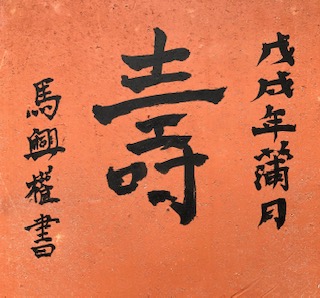 戊戌年蒲月
壽
馬興權書